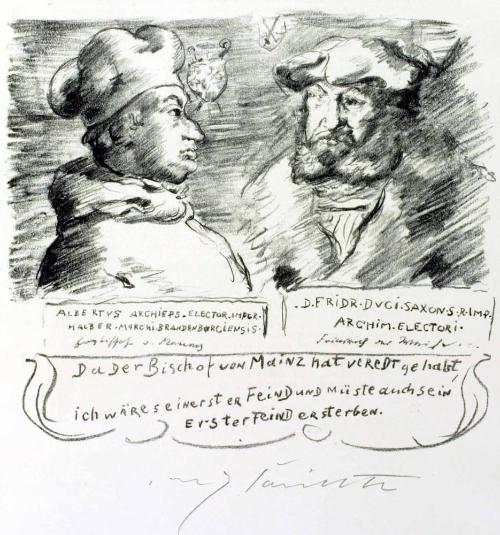 ALBERTVS ARCHIEPS. ELECTOR. IMPER.
HALBER. MARCHI. BRANDENBORGIENSIS.
.D. FRIDR. DVCI. SAXON. S. R. IMP.
ARCHIM. ELECTORI.
Da DeR Bischof von Mainz hat veRedt gehabt,
ich wäre sein erster Feind und müste auch sein
Erster Feind ersterben.